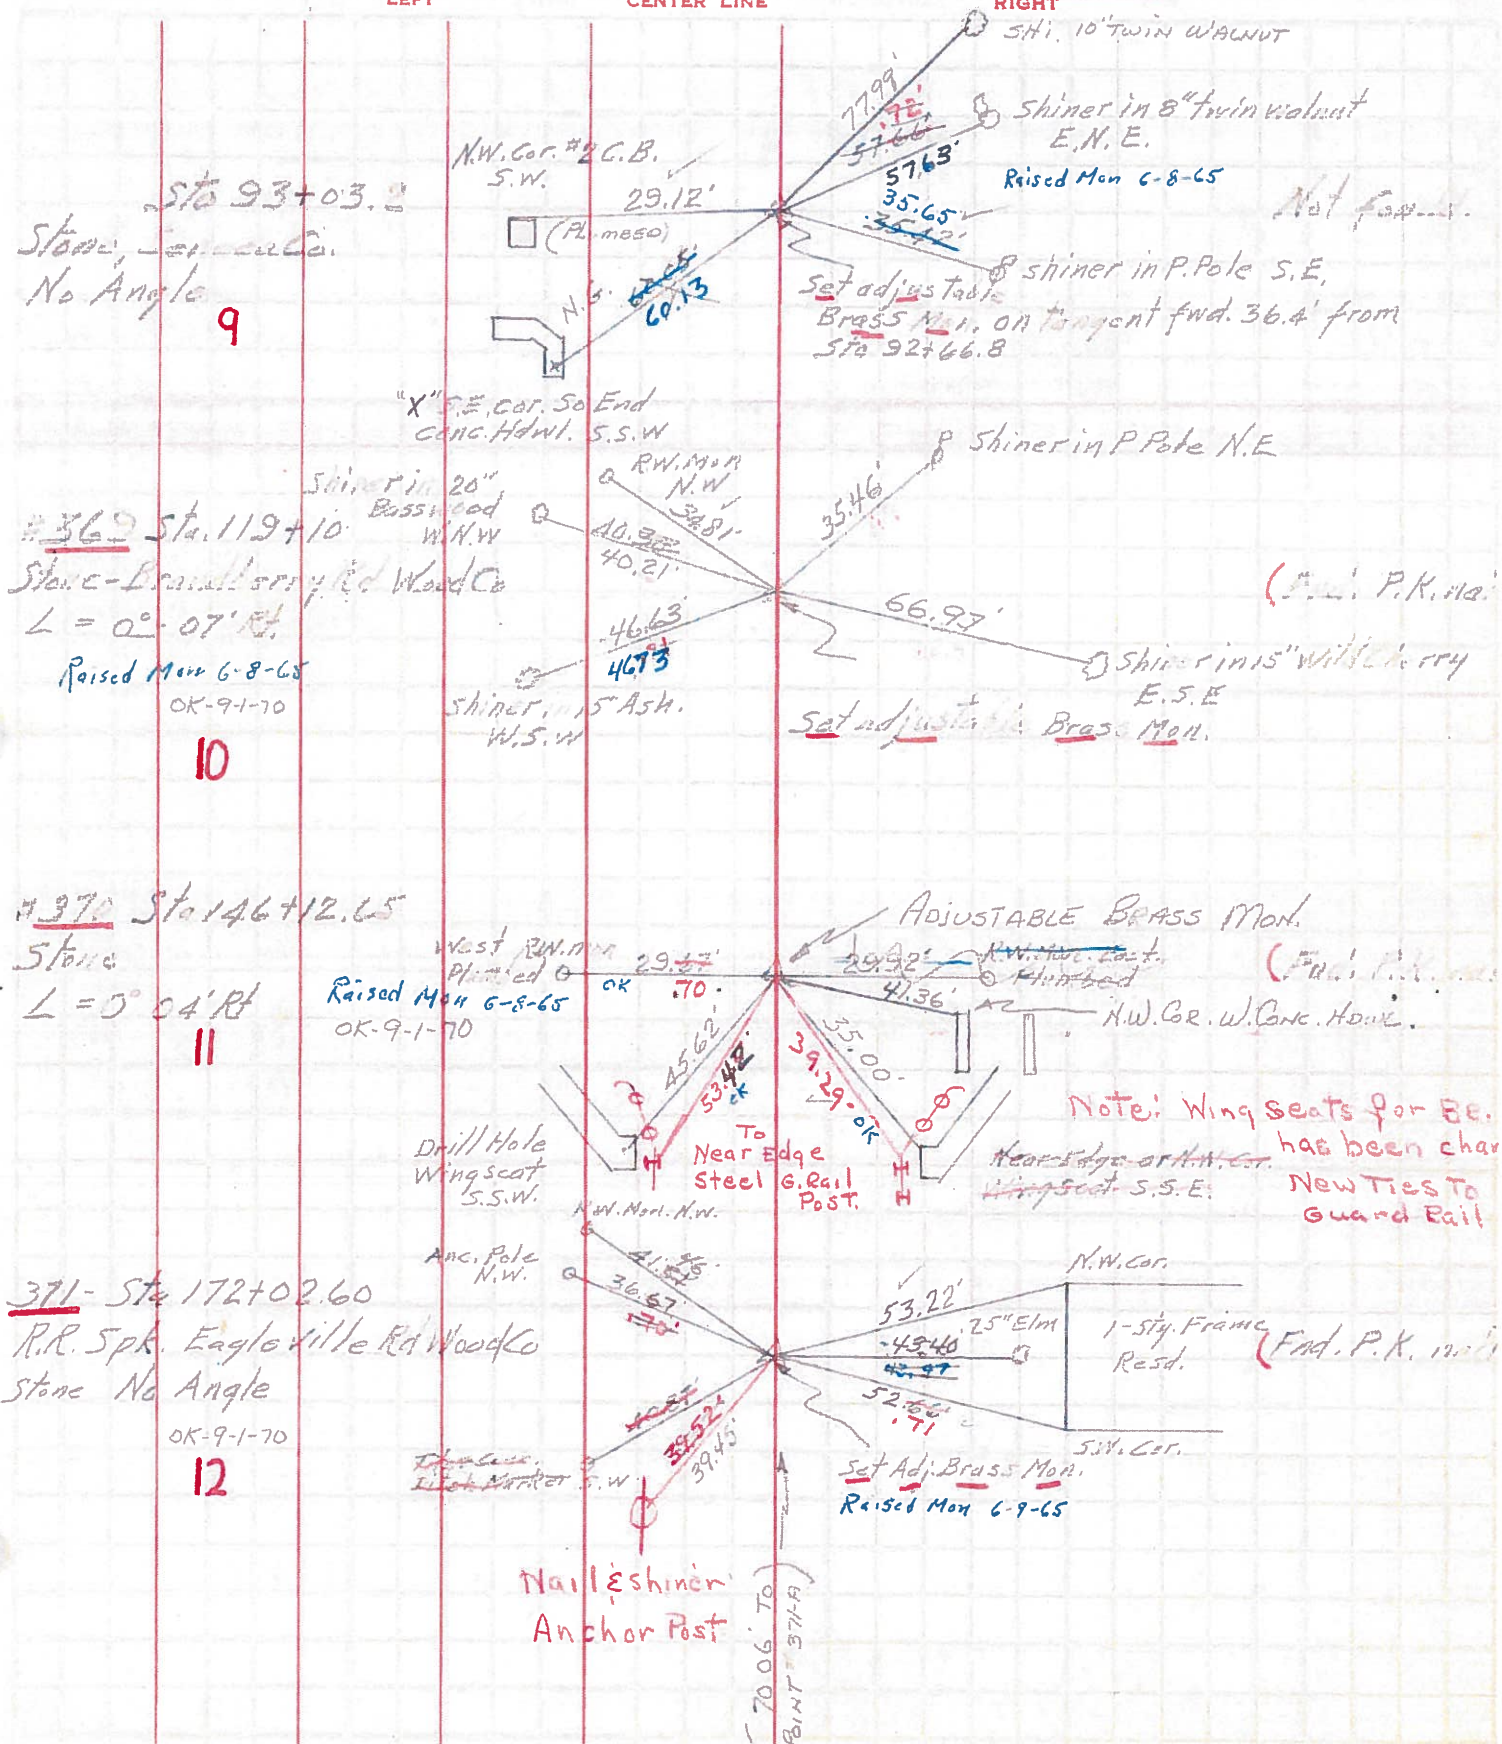 LEFT
CENTER LINE
RIGHT
SHi. 10" TWIN WALNUT
77.99'
.72'
57.66'
57.63'
Shiner in 8" twin walnut
E.N.E.
Raised Mon 6-8-65
N.W. Cor. #2 C.B.
S.W.
29.12'
Sta 93+03.
Stone,
No Angle
9
35.65
35.42'
Not
shiner in P.Pole S.E.
N.S.
60.13
Set adjustable
Brass Mon. on Tangent fwd. 36.4' from
Sta 92+66.8
"X" S.E. cor. So End
conc. Hdwl. S.S.W
Shiner in P Pole N.E
R.W. Mon
N.W
39.81'
Shiner in 20"
Basswood
W.N.W
40.21'
35.46'
#369 Sta. 119+10
Wood Co
L = 0° 07' Rt.
Raised Mon 6-8-65
OK-9-1-70
10
46.63'
46.73
66.97'
P.K.
Shiner in 15" Wild Cherry
E.S.E
Shiner in 15" Ash.
W.S.W
Set adjustable Brass Mon.
#370 Sta 146+12.65
Stone
L = 0° 04' Rt
11
Raised Mon 6-8-65
OK-9-1-70
ADJUSTABLE BRASS MON.
West R.W. mon
Plumbed
29.37'
OK
.70
29.92'
Plumbed
41.36'
N.W. COR. W. CONC. HDWL.
45.62'
53.42
OK
39.29
OK
35.00
Drill Hole
Wingseat
S.S.W.
To
Near Edge
Steel G.Rail
Post.
Near Edge or N.W. Cor.
Wingseat S.S.E.
Note: Wing Seats for BE.
has been chan
New Ties To
Guard Rail
R.W. Mon. N.W.
Anc. Pole
N.W.
36.67'
.70'
371- Sta 172+02.60
R.R. Spk. Eagleville Rd Wood Co
Stone No Angle
OK-9-1-70
12
N.W. Cor.
53.22'
25" Elm
43.40
42.97
1-Sty. Frame
Resd.
(Fnd. P.K.
52.66'
.71
S.W. Cor.
39.52'
39.45'
Marker S.W
Set Adj. Brass Mon.
Raised Mon 6-9-65
Nail & shiner
Anchor Post
70.06' To
POINT 371-A